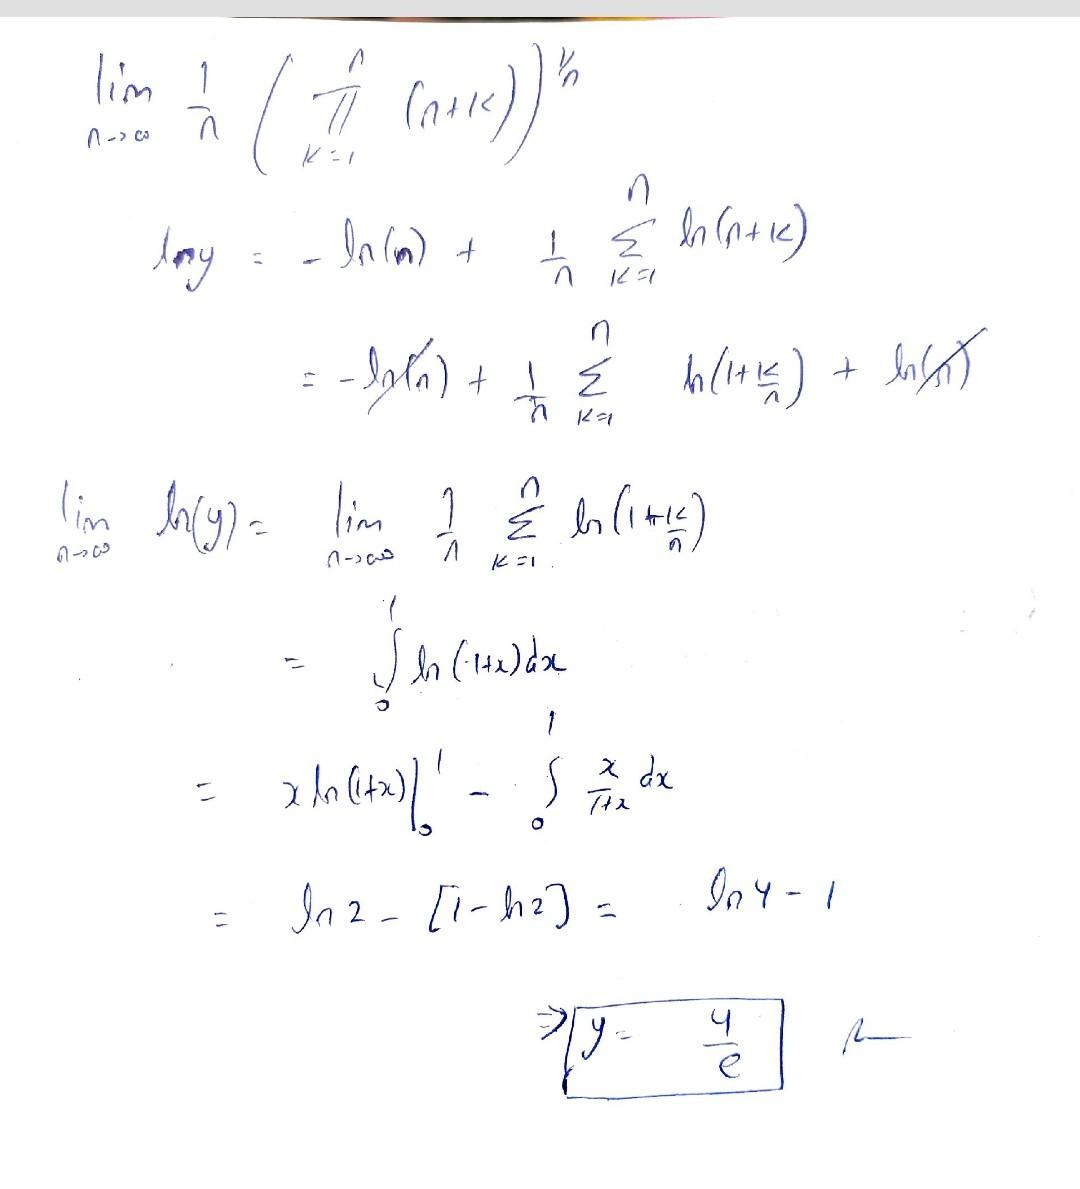 lim n→∞ 1/n ( n Π k=1 (n+k))^1/n
lny = - ln(n) + 1/n n Σ k=1 ln(n+k)
= - ln(n) + 1/n n Σ k=1 ln(1+k/n) + ln(n)
lim n→∞ ln(y) = lim n→∞ 1/n n Σ k=1 ln(1+k/n)
= ∫ 0 1 ln(1+x)dx
= x ln(1+x)| 0 1 - ∫ 0 1 x/1+x dx
= ln2 - [1-ln2] = ln4 - 1
⇒ y = 4/e